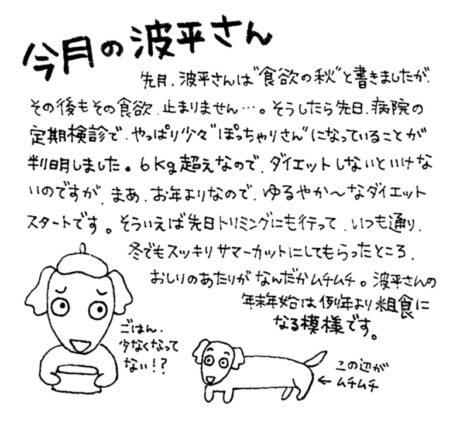 今月の波平さん
先月、波平さんは"食欲の秋"と書きましたが、
その後もその食欲、止まりません…。そうしたら先日、病院の
定期検診で、やっぱり少々"ぽっちゃりさん"になっていることが
判明しました。6kg超えなので、ダイエットしないといけな
いのですが、まあ、お年よりなので、ゆるやか〜なダイエット
スタートです。そういえば先日トリミングにも行って、いつも通り、
冬でもスッキリサマーカットにしてもらったところ、
おしりのあたりがなんだかムチムチ。波平さんの
年末年始は例年より粗食に
なる模様です。
ごはん、
少なくなって
ない!?
この辺が
←ムチムチ